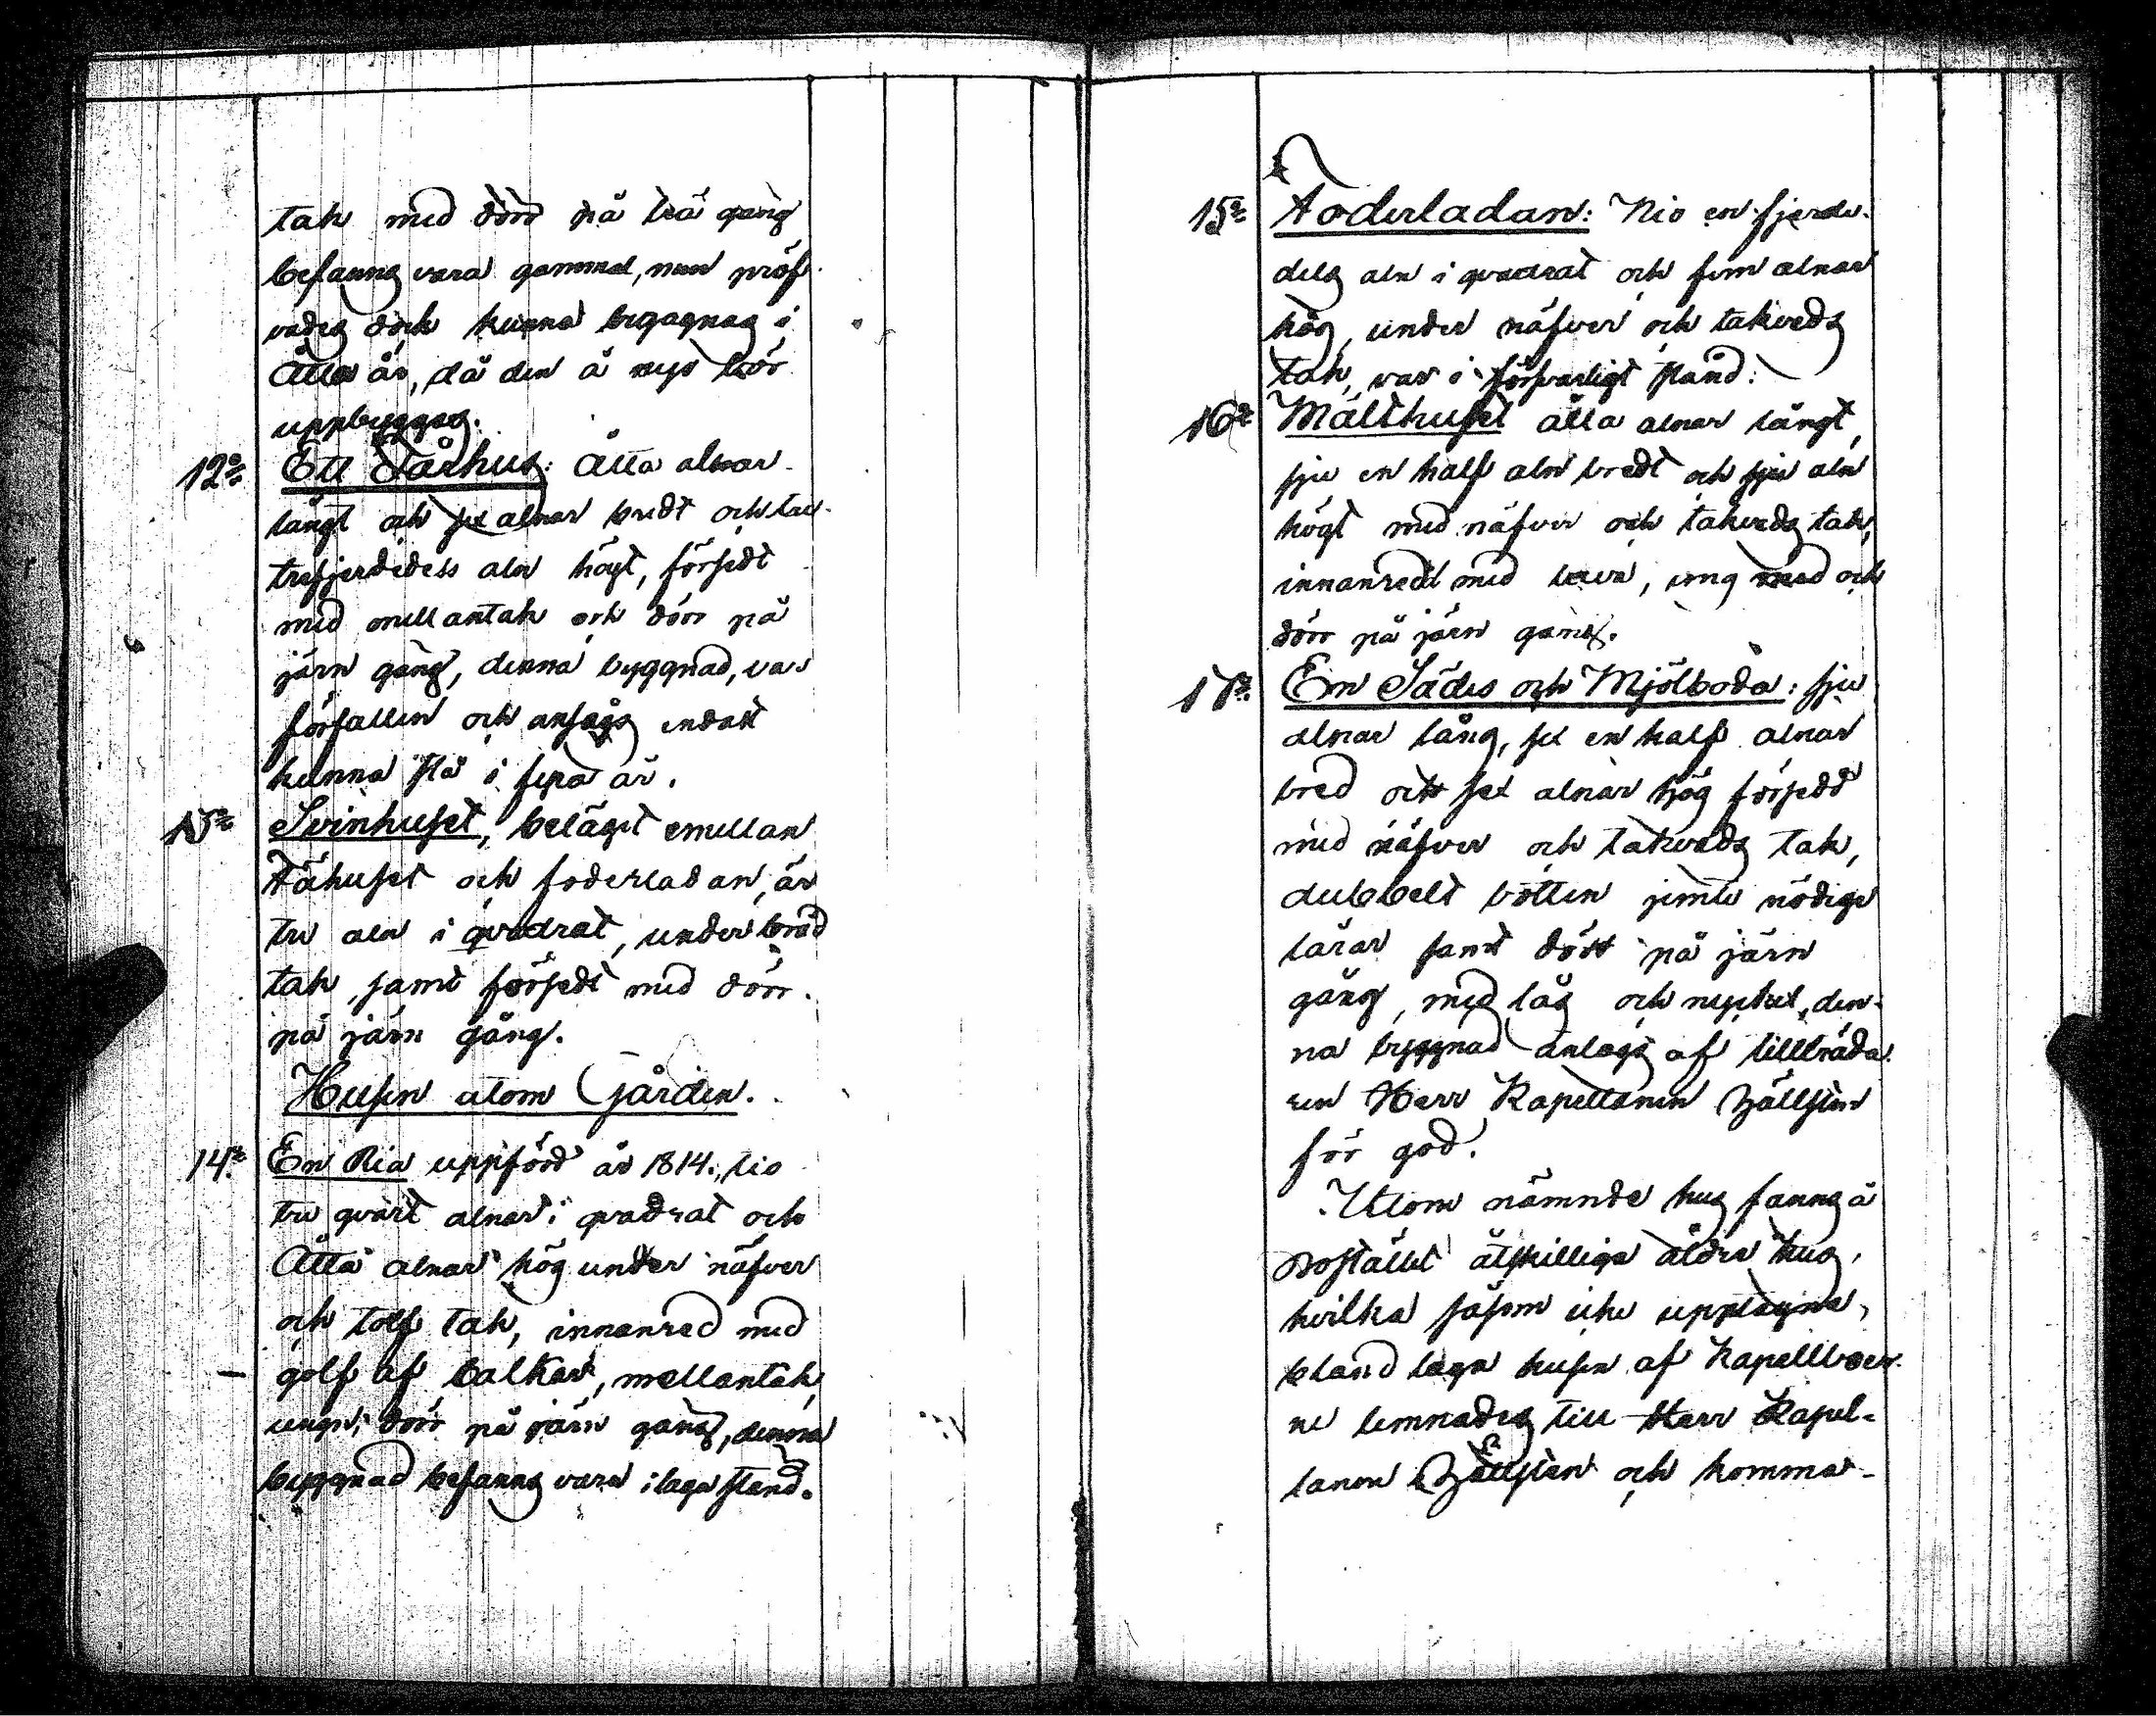 tak med dörr på trä gång
befanns vara gammal, men pröf-
vades dock kunna begagnas i
Åtta år, då den å nyo bör
uppbyggas.
12o Ett Fårhus: Åtta alnar
långt och sex alnar bredt och tre
trefjerdedels aln högt, försedt
med mellantak och dörr på
järn gång, denna byggnad, var
förfallen och ansågs endast
kunna stå i fyra år.
13o Svinhuset, beläget emellan
Fähuset och foderladan, är
tre aln i qvadrat, under bräd
tak, samt försedt med dörr
på järn gång.
Husen utom Gården.
14o En Ria uppförd år 1814, tio
tre qvart alnar i qvadrat och
Åtta alnar hög under näfver
och tolf tak, innanred med
golf af balkar, mellantak,
ungn, dörr på järn gång, denna
byggnad befanns vara i laga stånd.
15o Foderladan: Nio en fjerde-
dels aln i qvadrat och fem alnar
hög, under näfver och takveds
tak, var i försvarligt stånd.
16o Mälthuset åtta alnar långt,
sju en half aln bredt och sju aln
högt med näfver och takveds tak,
innanredd med lavar, ung och
dörr på järn gång.
17o En Sädes och Mjölboda: sju
alnar lång, sex en half alnar
bred och sex alnar hög försedd
med näfver och takveds tak,
dubbelt botten jemte nödige
lårar samt dörr på järn
gång, med lås och nyckel, den-
na byggnad antogs af tillträda-
ren Herr Kapellanen
för god.
Utom nämnde hus fanns å
Bostället åtskilliga äldre hus,
hvilka såsom icke upptagne,
bland laga husen af Kapellboer-
ne lemnades till Herr Kapel-
lanen och komma-